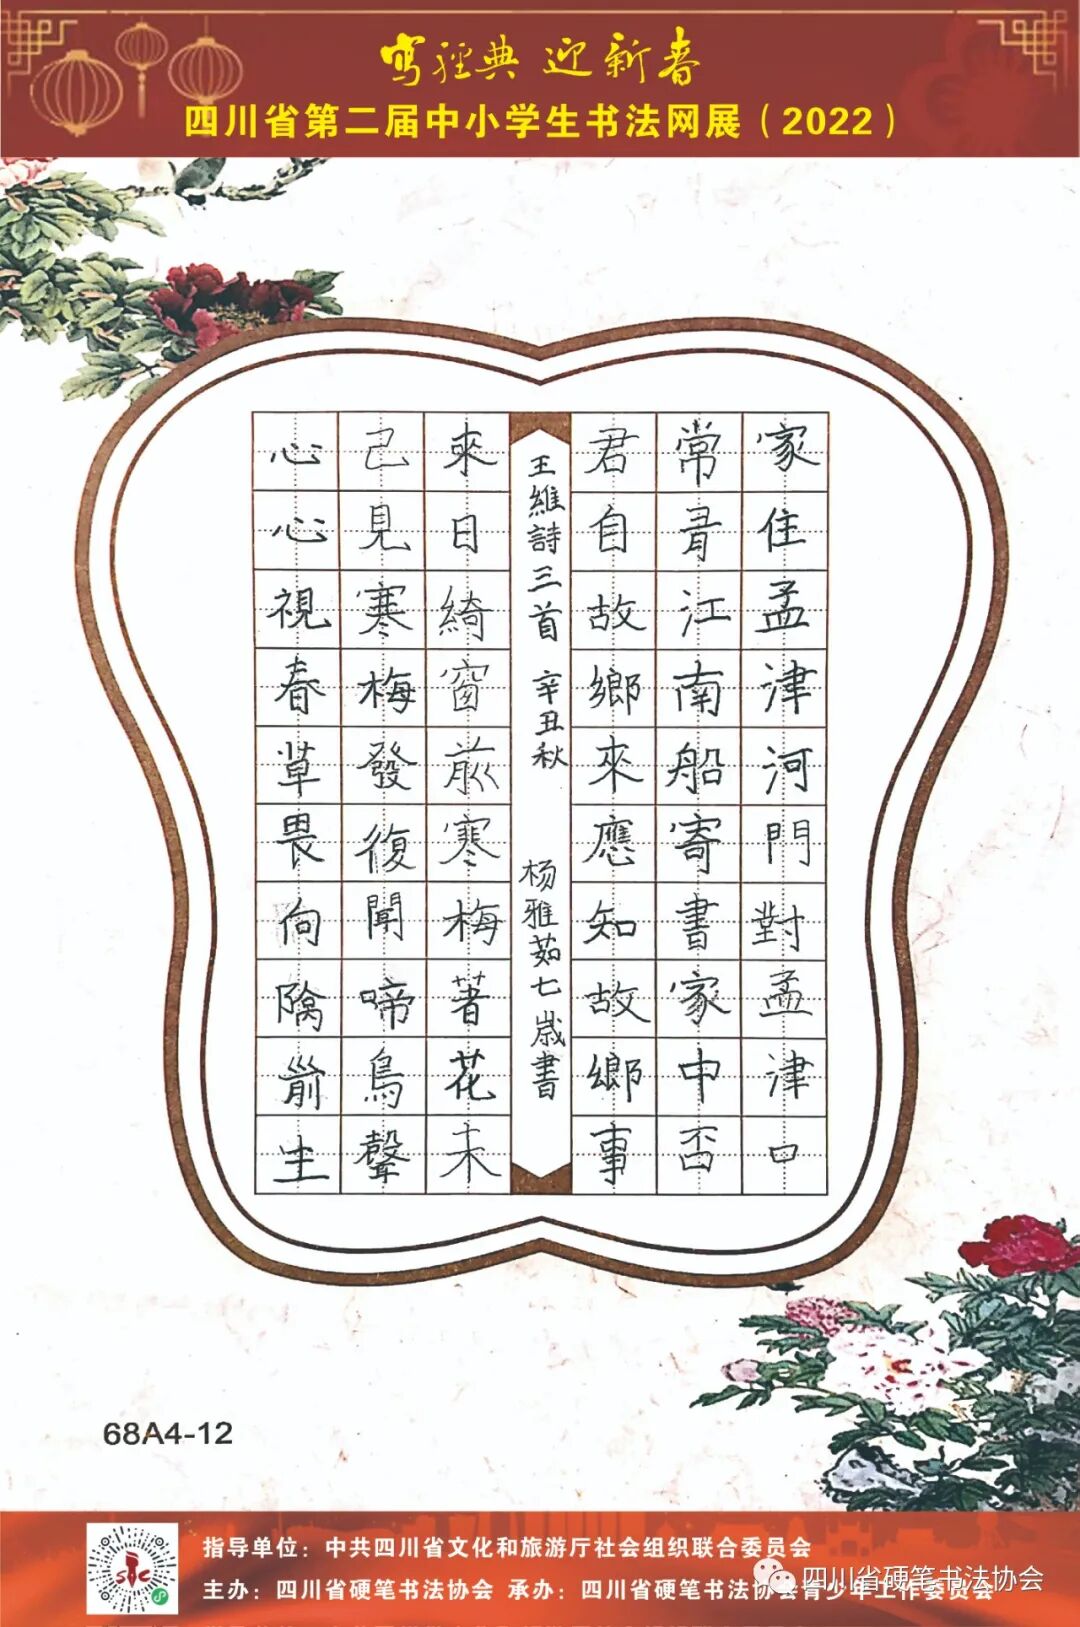 寫經典 迎新春
四川省第二届中小学生书法网展（2022）
家住孟津河門對孟津口
常有江南船寄書家中否
君自故鄉來應知故鄉事
王維詩三首 辛丑秋 杨雅茹七歲書
來日綺窗前寒梅著花未
己見寒梅發復聞啼鳥聲
心心視春草畏向前生
68A4-12
指导单位：中共四川省文化和旅游厅社会组织联合委员会
主办：四川省硬笔书法协会 承办：四川省硬笔书法协会青少年工作委员会
四川省硬笔书法协会